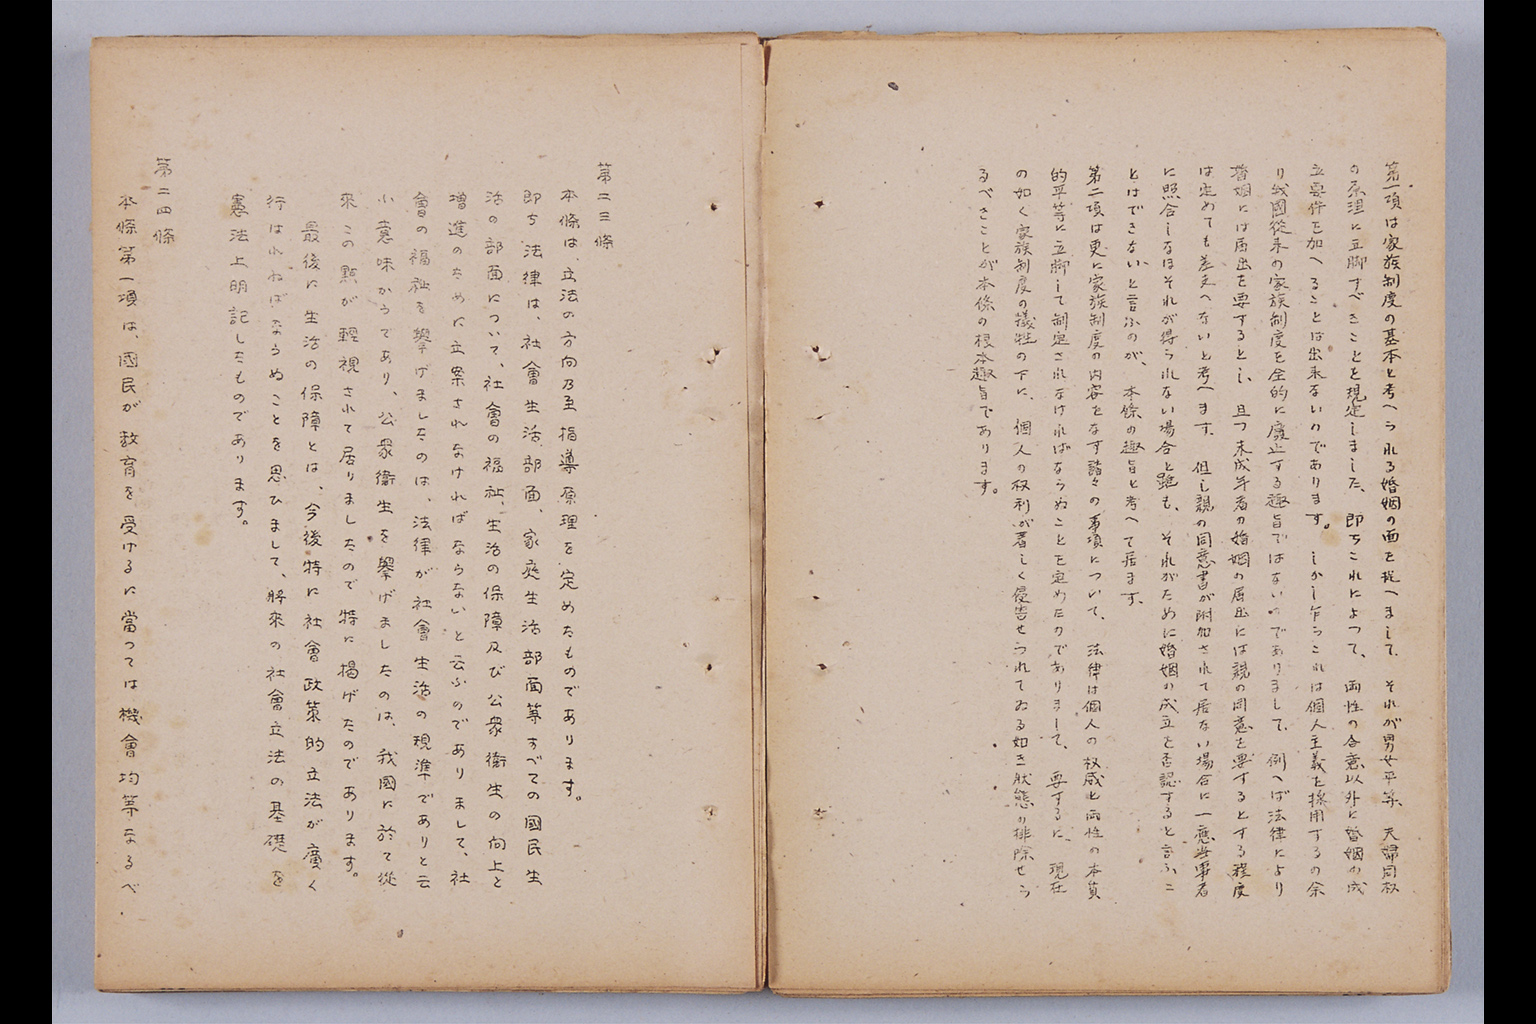 第一項は家族制度の基本と考へられる婚姻の面を捉へまして、それが男女平等、夫婦同权
の原理に立脚すべきことを規定しました、即ちこれによつて、両性の合意以外に婚姻の成
立要件を加へることは出来ないのであります。しかし乍らこれは個人主義を採用するの余
り我國從来の家族制度を全的に廢止する趣旨ではないのでありまして、例へば法律により
婚姻には届出を要するとし、且つ未成年者の婚姻の届出には親の同意を要するとする程度
は定めても差支へないと考へます、但し親の同意書が附加されて居ない場合に一應当事者
に照合しなほそれが得られない場合と雖も、それがために婚姻の成立を否認すると言ふこ
とはできないと言ふのが、本條の趣旨と考へて居ます、
第二項は更に家族制度の内容をなす諸々の事項について、法律は個人の权威と両性の本質
的平等に立脚して制定されなければならぬことを定めたのでありまして、要するに、現在
の如く家族制度の犠牲の下に、個人の权利が著しく侵害せられてゐる如き狀態の排除せら
るべきことが本條の根本趣旨であります。
第二三條
本條は、立法の方向乃至指導原理を定めたものであります。
即ち法律は、社會生活部面、家庭生活部面等すべての國民生
活の部面について、社會の福祉、生活の保障及び公衆衞生の向上と
増進のために立案されなければならないと云ふのでありまして、社
會の福祉を擧げましたのは、法律が社會生活の規準でありと云
ふ意味からであり、公衆衞生を擧げましたのは、我國に於て從
来この點が輕視されて居りましたので特に揭げたのであります。
最後に生活の保障とは、今後特に社會政策的立法が廣く
行はれねばならぬことを思ひまして、將来の社會立法の基礎を
憲法上明記したものであります。
第二四條
本條第一項は、國民が教育を受けるに當つては機會均等なるべ